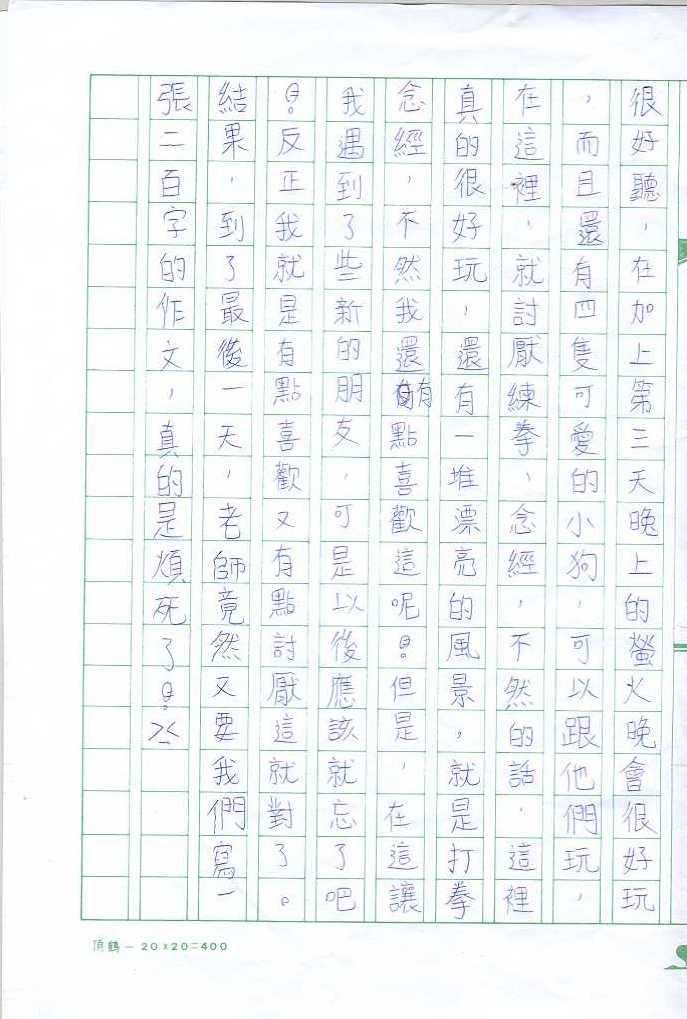 很好聽，在加上第三天晚上的螢火晚會很好玩
，而且還有四隻可愛的小狗，可以跟他們玩，
在這裡，就討厭練拳，念經，不然的話，這裡
真的很好玩，還有一堆漂亮的風景，就是打拳
念經，不然我還有點喜歡這呢。但是，在這讓
我遇到了些新的朋友，可是以後應該就忘了吧
。反正我就是有一點喜歡又有點討厭這就對了。
結果，到了最後一天，老師竟然又要我們寫一
張二百字的作文，真的是煩死了。><
頂鶴－20x20=400